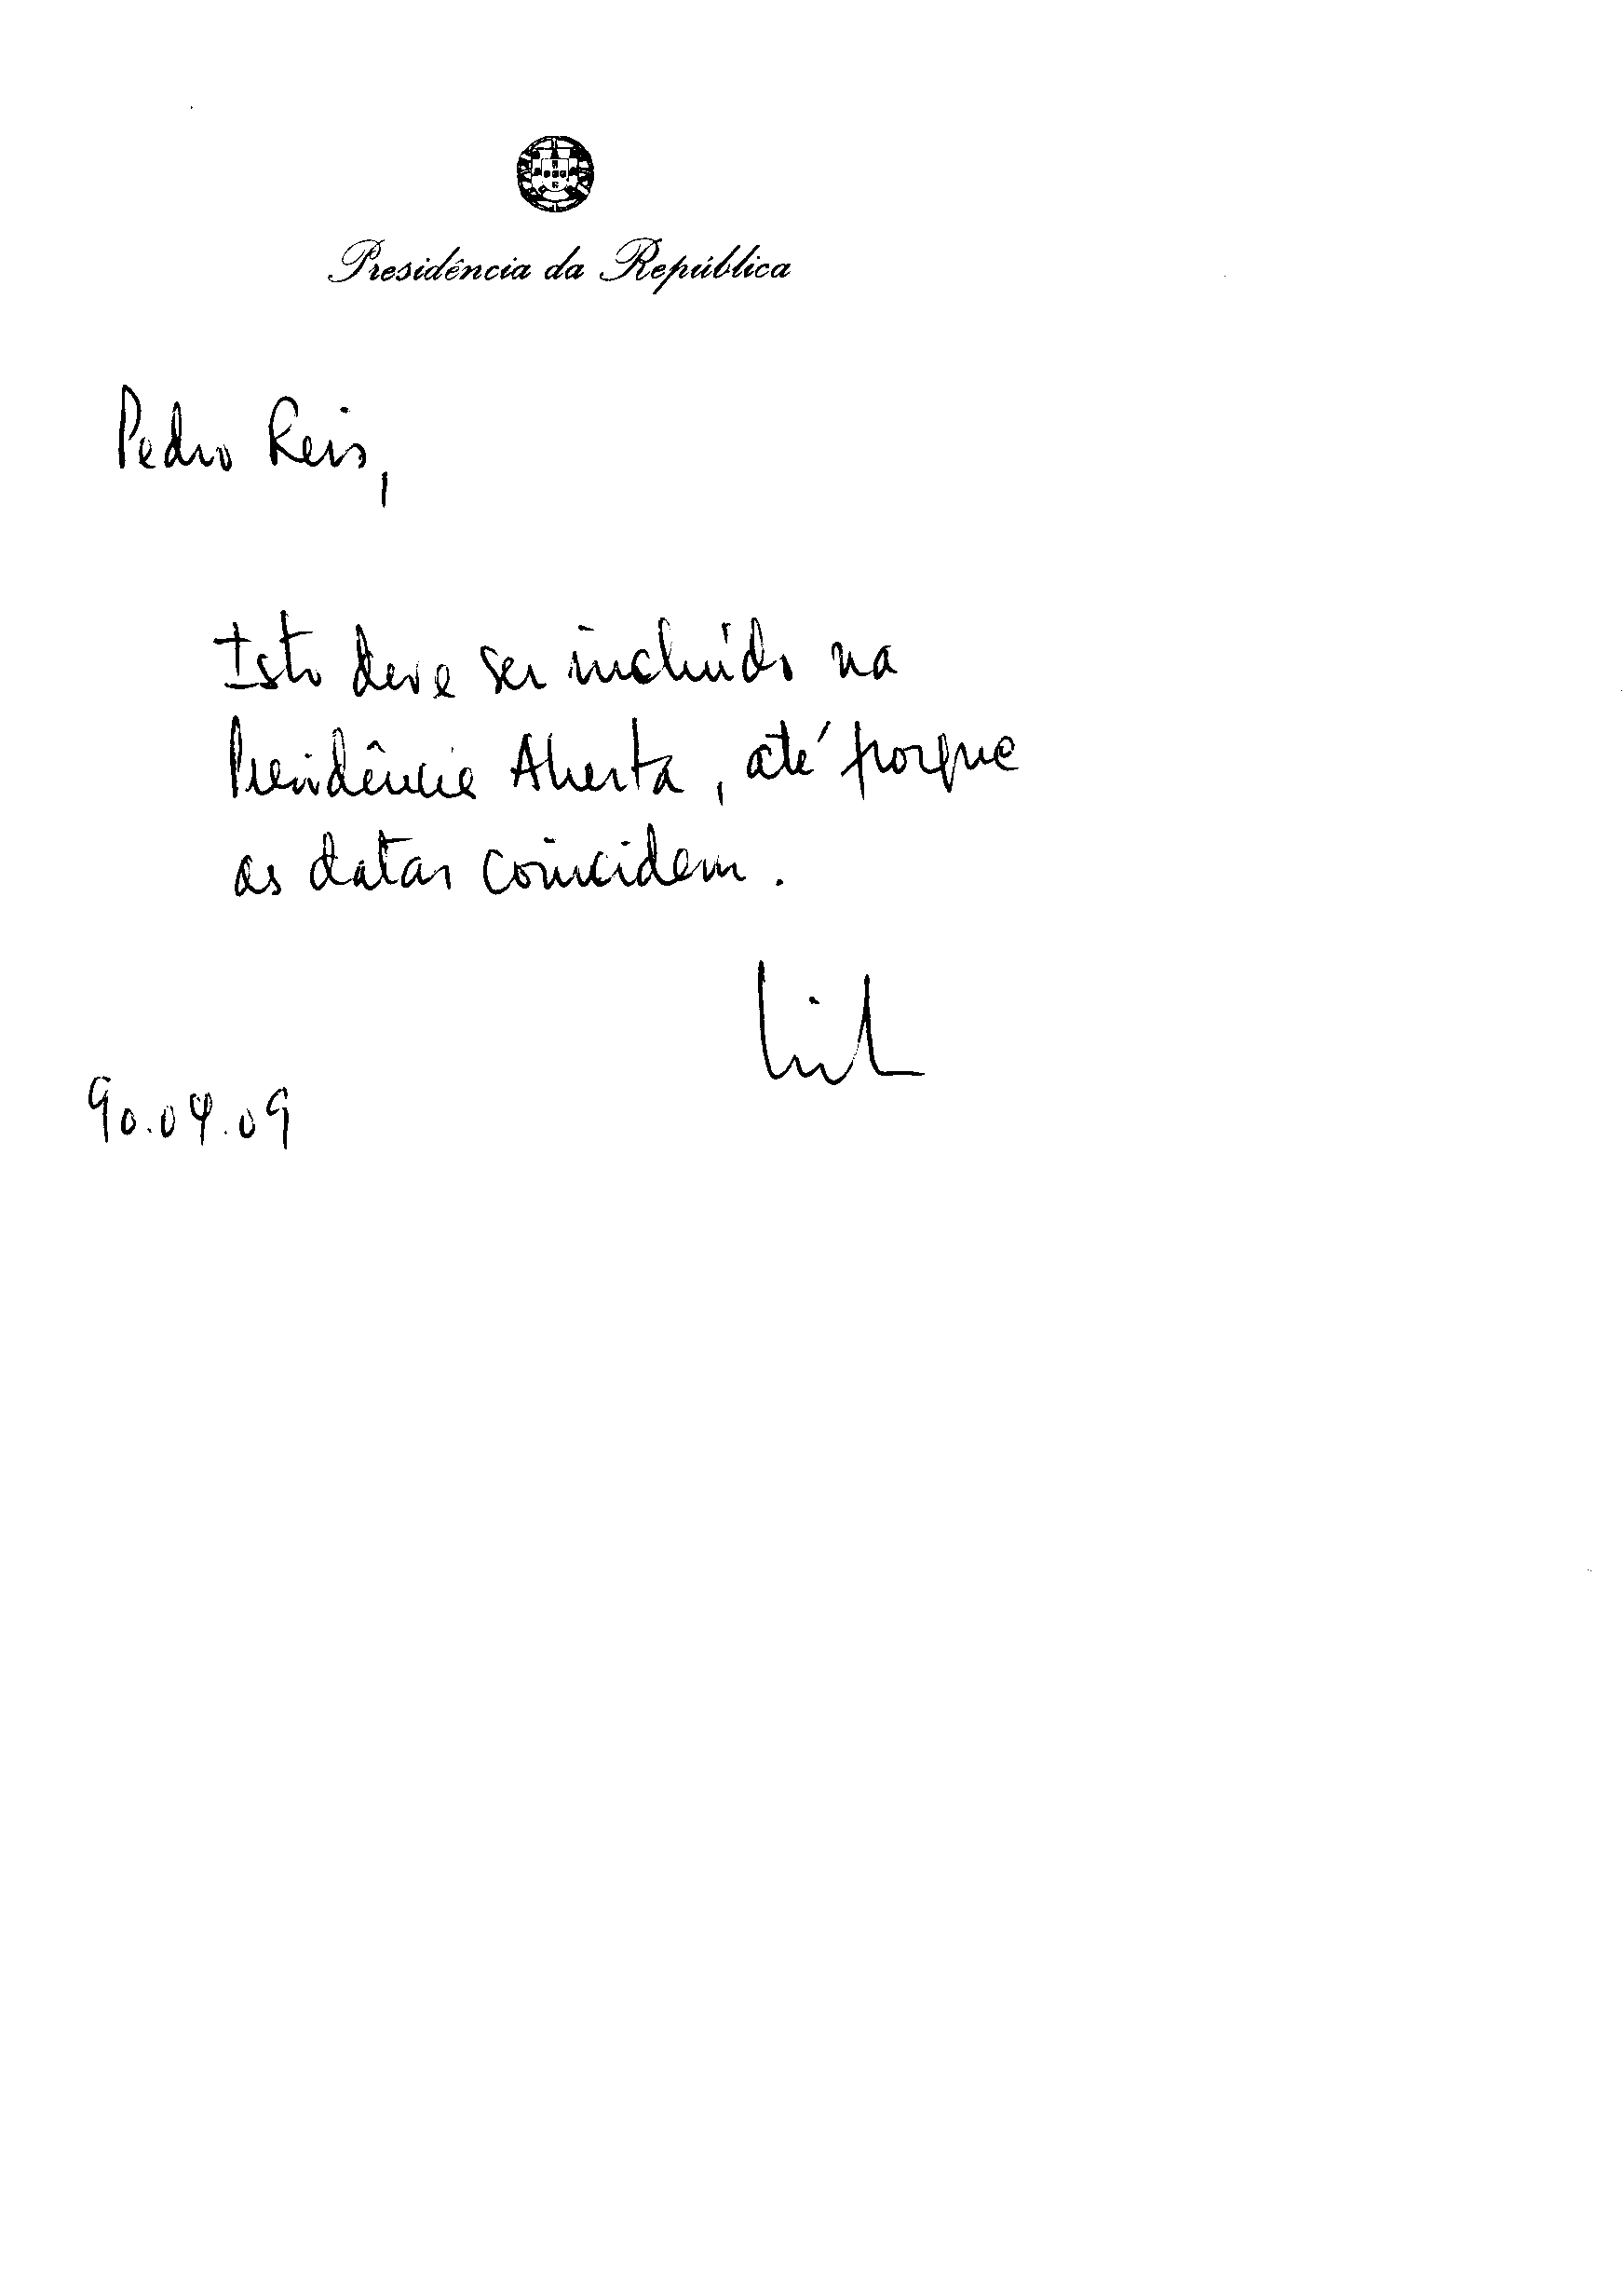 Presidência da República
Pedro Reis,
Isto deve ser incluído na
Presidência Aberta, até porque
as datas coincidem.
90.04.09